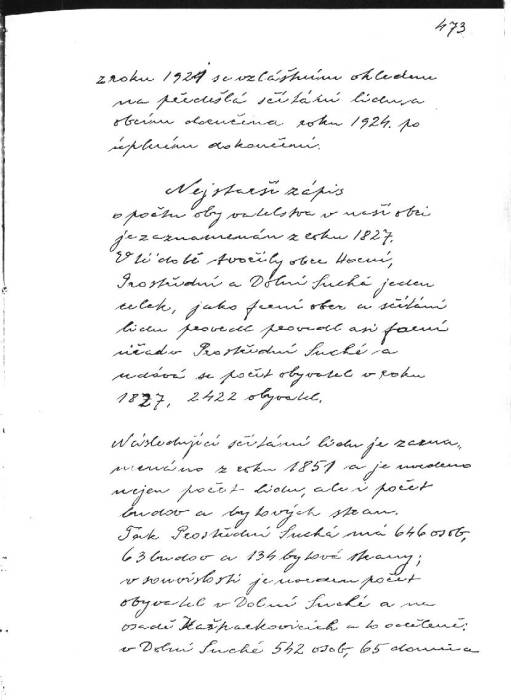 473
z roku 1921 se vzláštním ohledem
na předešlá sčítání lidu, a
obcím doručena roku 1924. po
úplném dokončení.
Nejstarší zápis
o počtu obyvatelstva v naší obci
je zaznamenán z roku 1827.
V té době tvořily obce Horní,
Prostřední a Dolní Suchá jeden
celek, jako farní obec a sčítání
lidu provedl provedl asi farní
úřad v Prostřední Suché a
udává se počet obyvatel v roku
1827, 2422 obyvatel.
Následující sčítání lidu je zazna-
menáno z roku 1851 a je uvedeno
nejen počet lidu, ale i počet
budov a bytových stran.
Tak Prostřední Suchá má 646 osob,
63 budov a 134 bytové strany;
v souvislosti je uveden počet
obyvatel v Dolní Suché a na
osadě Kašpárkovicích a to odděleně:
v Dolní Suché 542 osob, 65 domů a